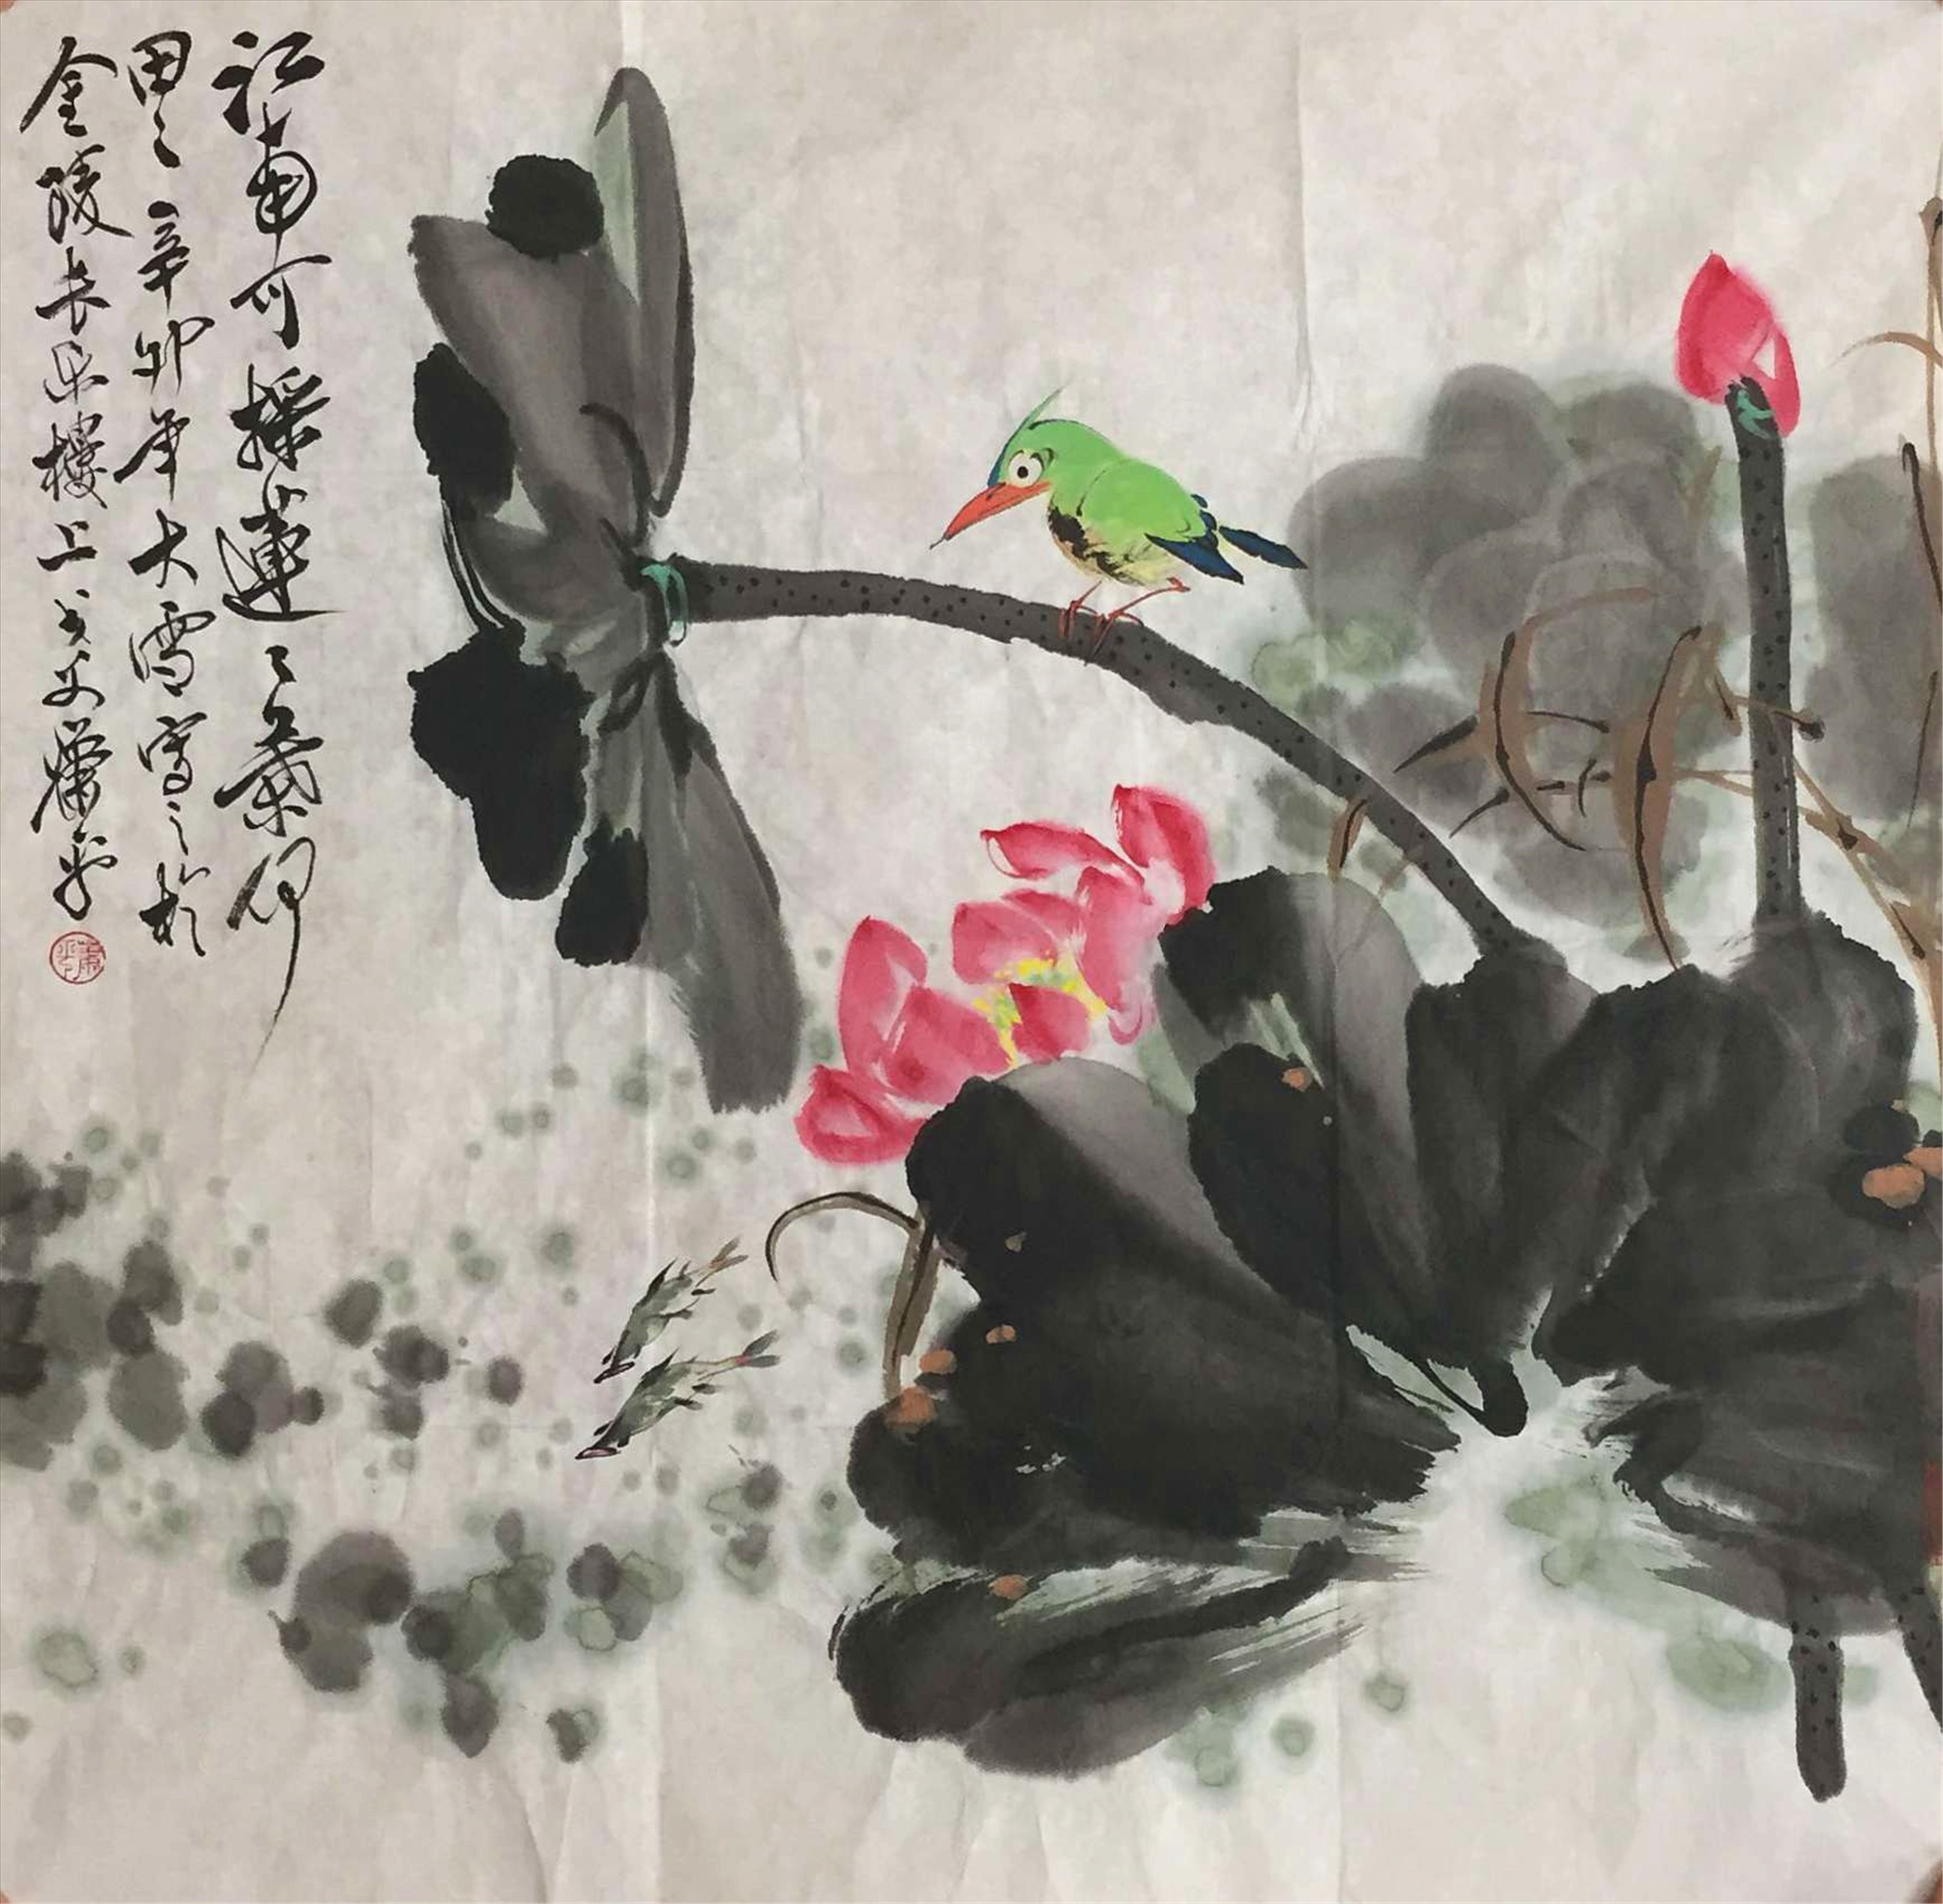 江南可採蓮 蓮葉何
田田 辛卯年大雪寫之於
金陵長樂樓上 蕭平
蕭平